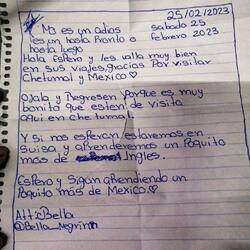 25/02/2023
No es un adios
sabado 25
es un hasta Pronto o
febrero 2023
hasta luego
Hola Espero y les valla muy bien
en sus viajes, gracias Por visitar
Chetumal y Mexico♡
Ojala y Regresen Porque es muy
bonito que esten de visita
aqui en chetumal
Y si nos esperan estaremos en
Suisa y aPrenderemos un Poquito
más de Ingles.
Espero y Sigan aPrendiendo un
Poquito más de Mexico.♡
Att: Bella
@Bella_Negrinn